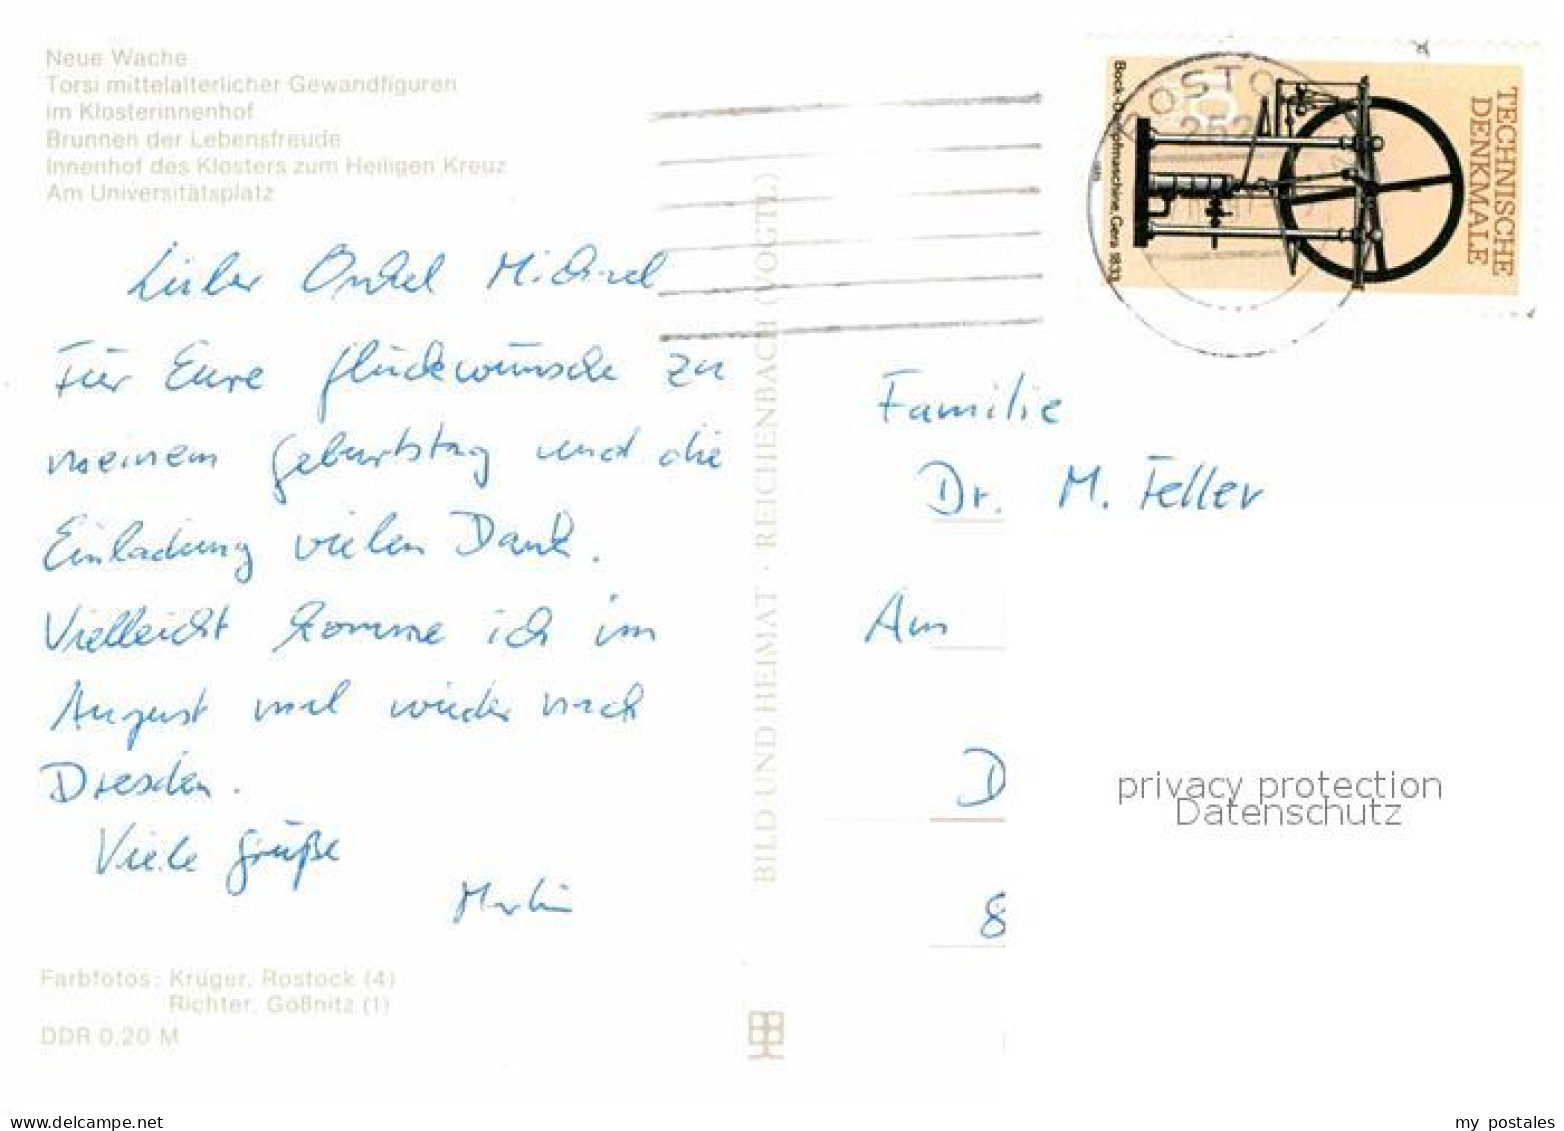 Neue Wache
Torsi mittelalterlicher Gewandfiguren
im Klosterinnenhof
Brunnen der Lebensfreude
Innenhof des Klosters zum Heiligen Kreuz
Am Universitätsplatz
Lieber Onkel Michael
Für Eure Glückwünsche zu
meinem Geburtstag und die
Einladung vielen Dank.
Vielleicht komme ich im
August mal wieder nach
Dresden.
Viele Grüße
Martin
Farbfotos: Krüger, Rostock (4)
Richter, Gößnitz (1)
DDR 0,20 M
BILD UND HEIMAT · REICHENBACH (VOGTL)
ROSTO
252
TECHNISCHE
DENKMALE
Bock-Dampfmaschine, Gera 1833
Familie
Dr. M. Feller
Am
D
8
privacy protection
Datenschutz
www.delcampe.net
my_postales